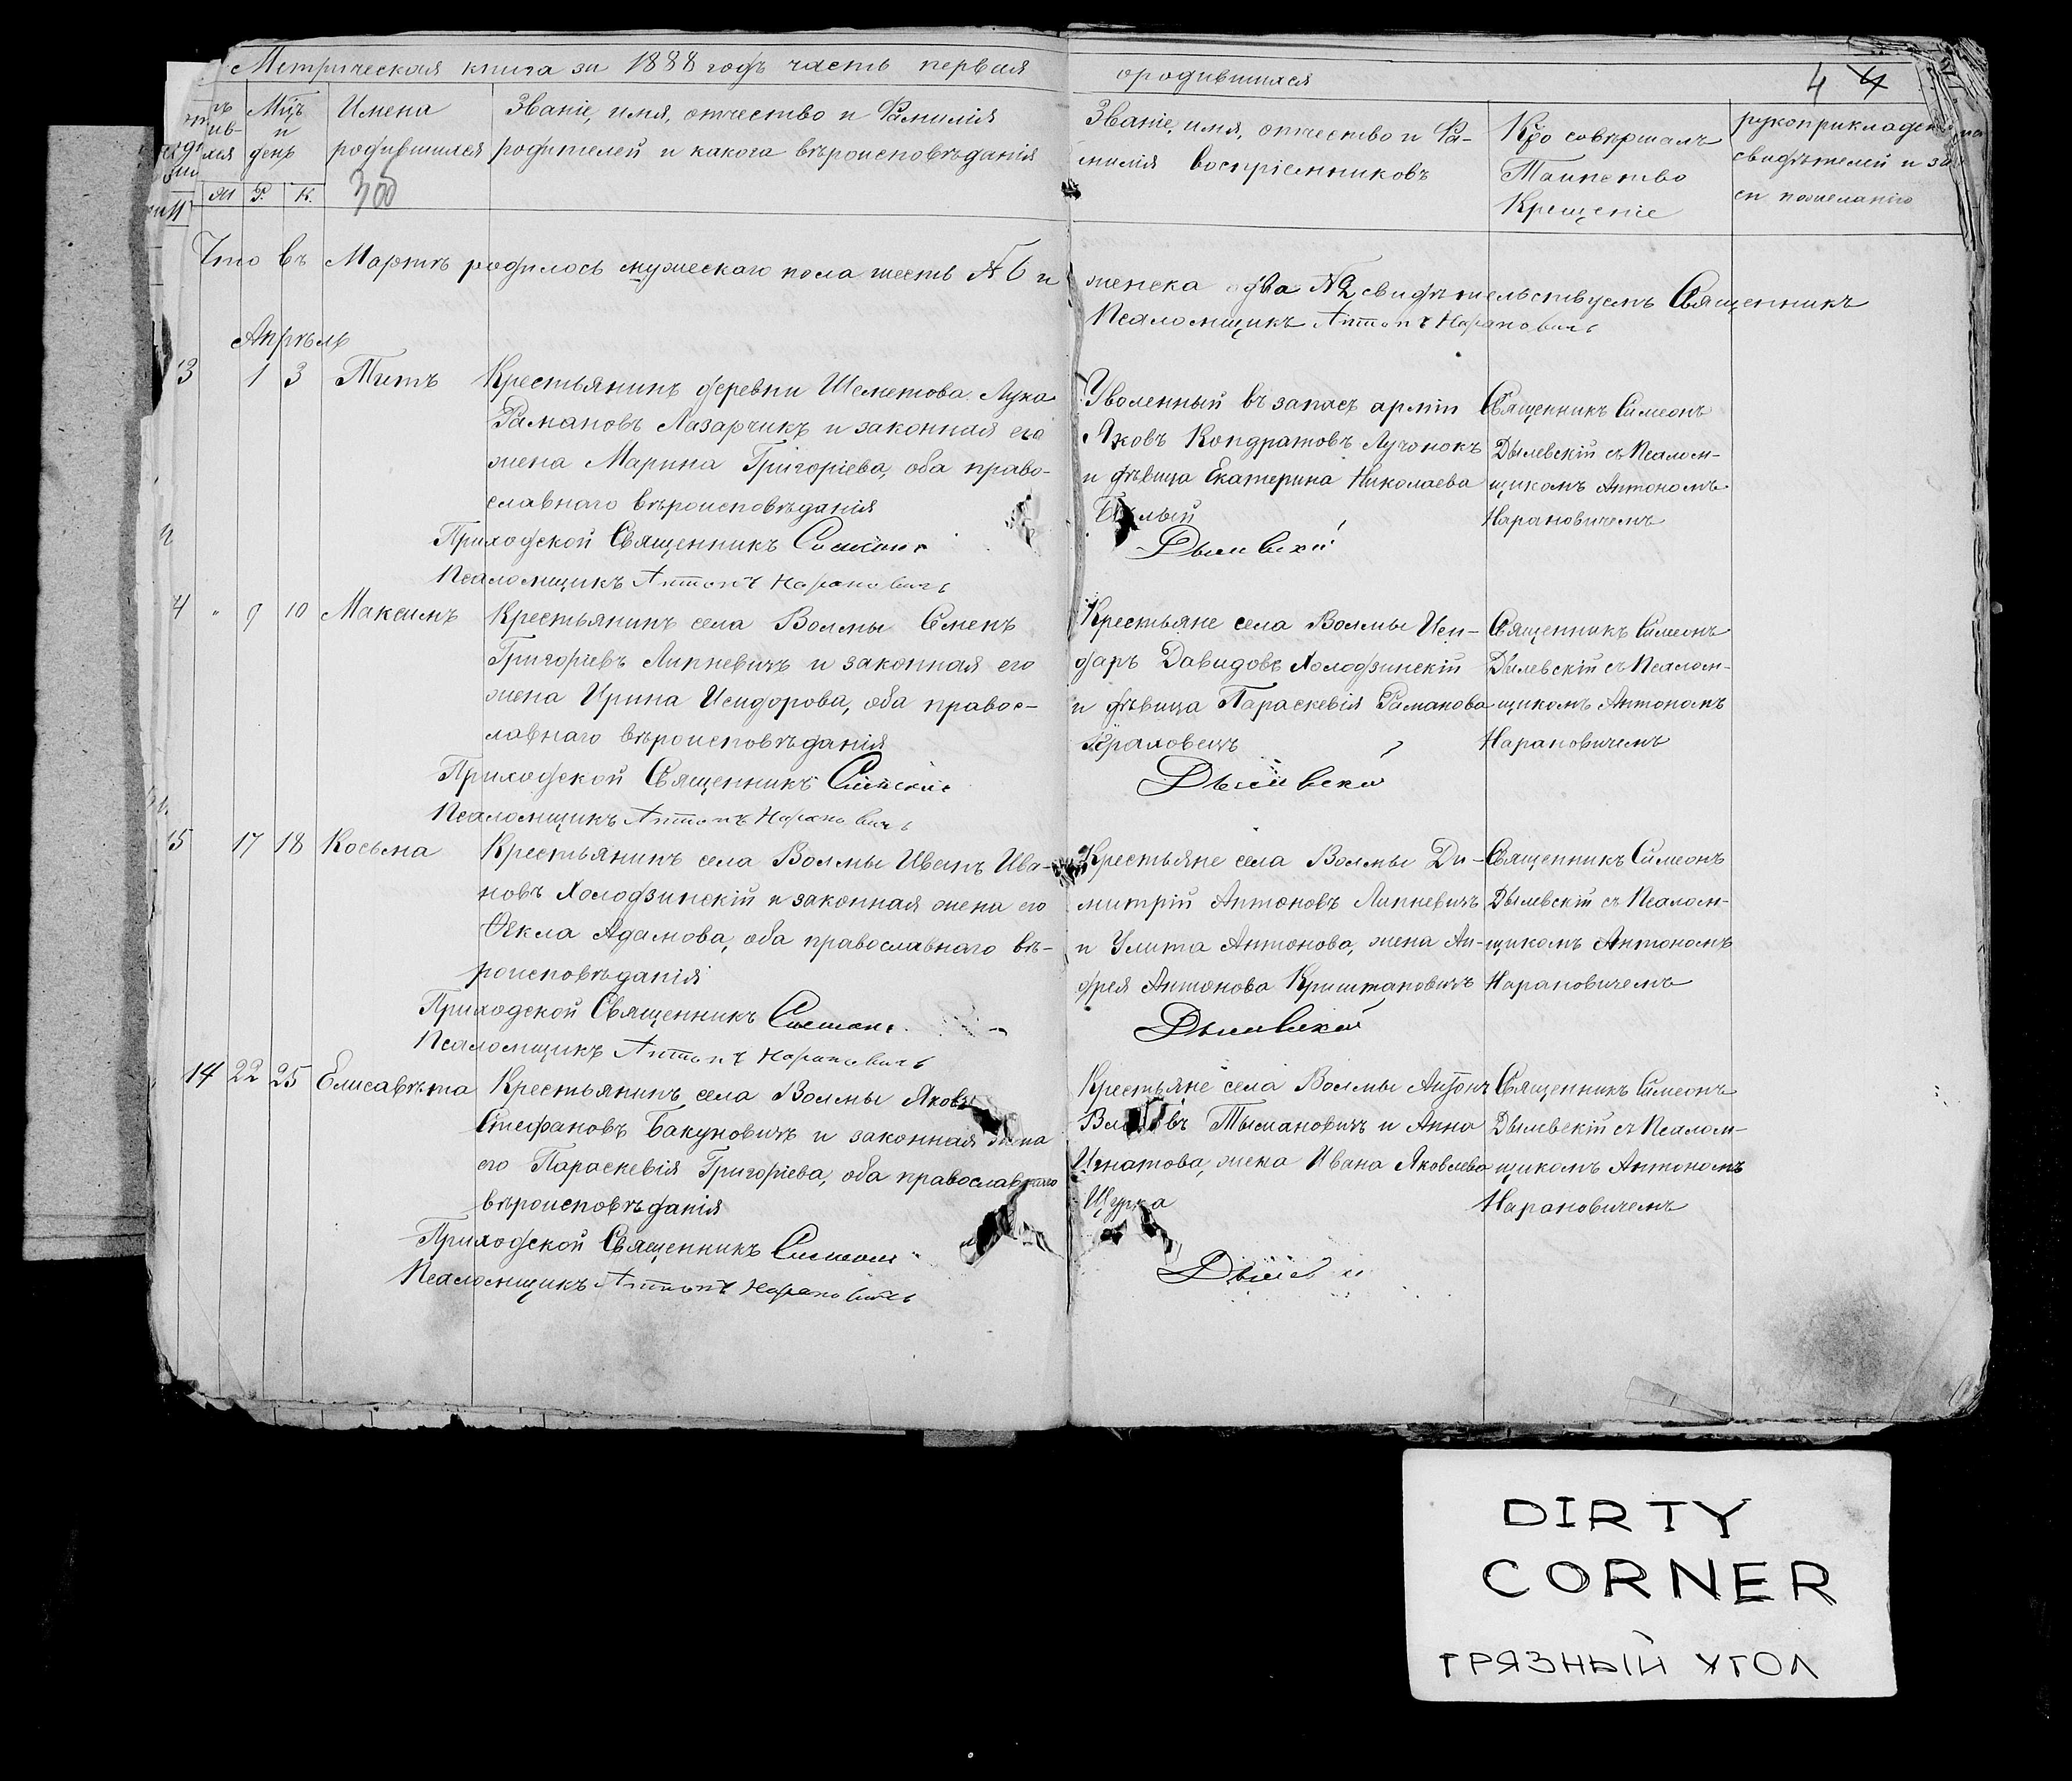 Метрическая книга за 1888 годъ часть первая
о родившихся
4 4
Мцъ
и
день
Имена
родившихся
300
Званіе, имя, отчество и Фамилія
родителей и какога вѣроисповѣданія
м Р. К.
Званіе, имя, отчество и Фа-
милія воспріемниковъ
Кто совѣршалъ
Таинство
Крещеніе
рукоприкладс
свидѣтелей и за
си по желанію
Что въ Мартѣ родилось мужескаго пола шесть № 6 и
женска два № 2 свидѣтельствуемъ Священникъ
Псаломщикъ Антонъ Нарановичъ
Апрѣль
3 1 3 Титъ
Крестьянинъ деревни Шеметова Лука
Рамановъ Лазарчикъ и законная его
жена Марина Григоріева, оба право-
славнаго вѣроисповѣданія
Приходской Священникъ Симеонъ
Псаломщикъ Антонъ Нарановичъ
Уволенный въ запасъ арміи
Яковъ Кондратовъ Лучонокъ
и дѣвица Екатерина Николаева
Дылевскій
Священникъ Симеонъ
Дылевскій съ Псалом-
щикомъ Антономъ
Нарановичемъ
4 " 9 10 Максимъ
Крестьянинъ села Волмы Семенъ
Григоріевъ Липневичъ и законная его
жена Ирина Исидорова, оба правос-
лавнаго вѣроисповѣданія
Приходской Священникъ Симеонъ
Псаломщикъ Антонъ Нарановичъ
Крестьяне села Волмы Иси-
доръ Давидовъ Холодзинскій
и дѣвица Параскевія Раманова
Краховецъ
Дылевскій
Священникъ Симеонъ
Дылевскій съ Псалом-
щикомъ Антономъ
Нарановичемъ
5 17 18 Косьма
Крестьянинъ села Волмы Иванъ Ива-
новъ Холодзинскій и законная жена его
Ѳекла Адамова, оба православнаго вѣ-
роисповѣданія
Приходской Священникъ Симеонъ
Псаломщикъ Антонъ Нарановичъ
Крестьяне села Волмы Ди-
митрій Антоновъ Липневичъ
и Улита Антонова, жена Ан-
дрея Антонова Криштановичъ
Дылевскій
Священникъ Симеонъ
Дылевскій съ Псалом-
щикомъ Антономъ
Нарановичемъ
14 22 25 Елисавѣта
Крестьянинъ села Волмы Яковъ
Стефановъ Бакуновичъ и законная жена
его Параскевія Григоріева, оба православнаго
вѣроисповѣданія
Приходской Священникъ Симеонъ
Псаломщикъ Антонъ Нарановичъ
Крестьяне села Волмы Антонъ
Тымановичъ и Анна
Игнатова, жена Ивана Яковлева
Щурка
Дылевскій
Священникъ Симеонъ
Дылевскій съ Псалом-
щикомъ Антономъ
Нарановичемъ
DIRTY
CORNER
ГРЯЗНЫЙ УГОЛ